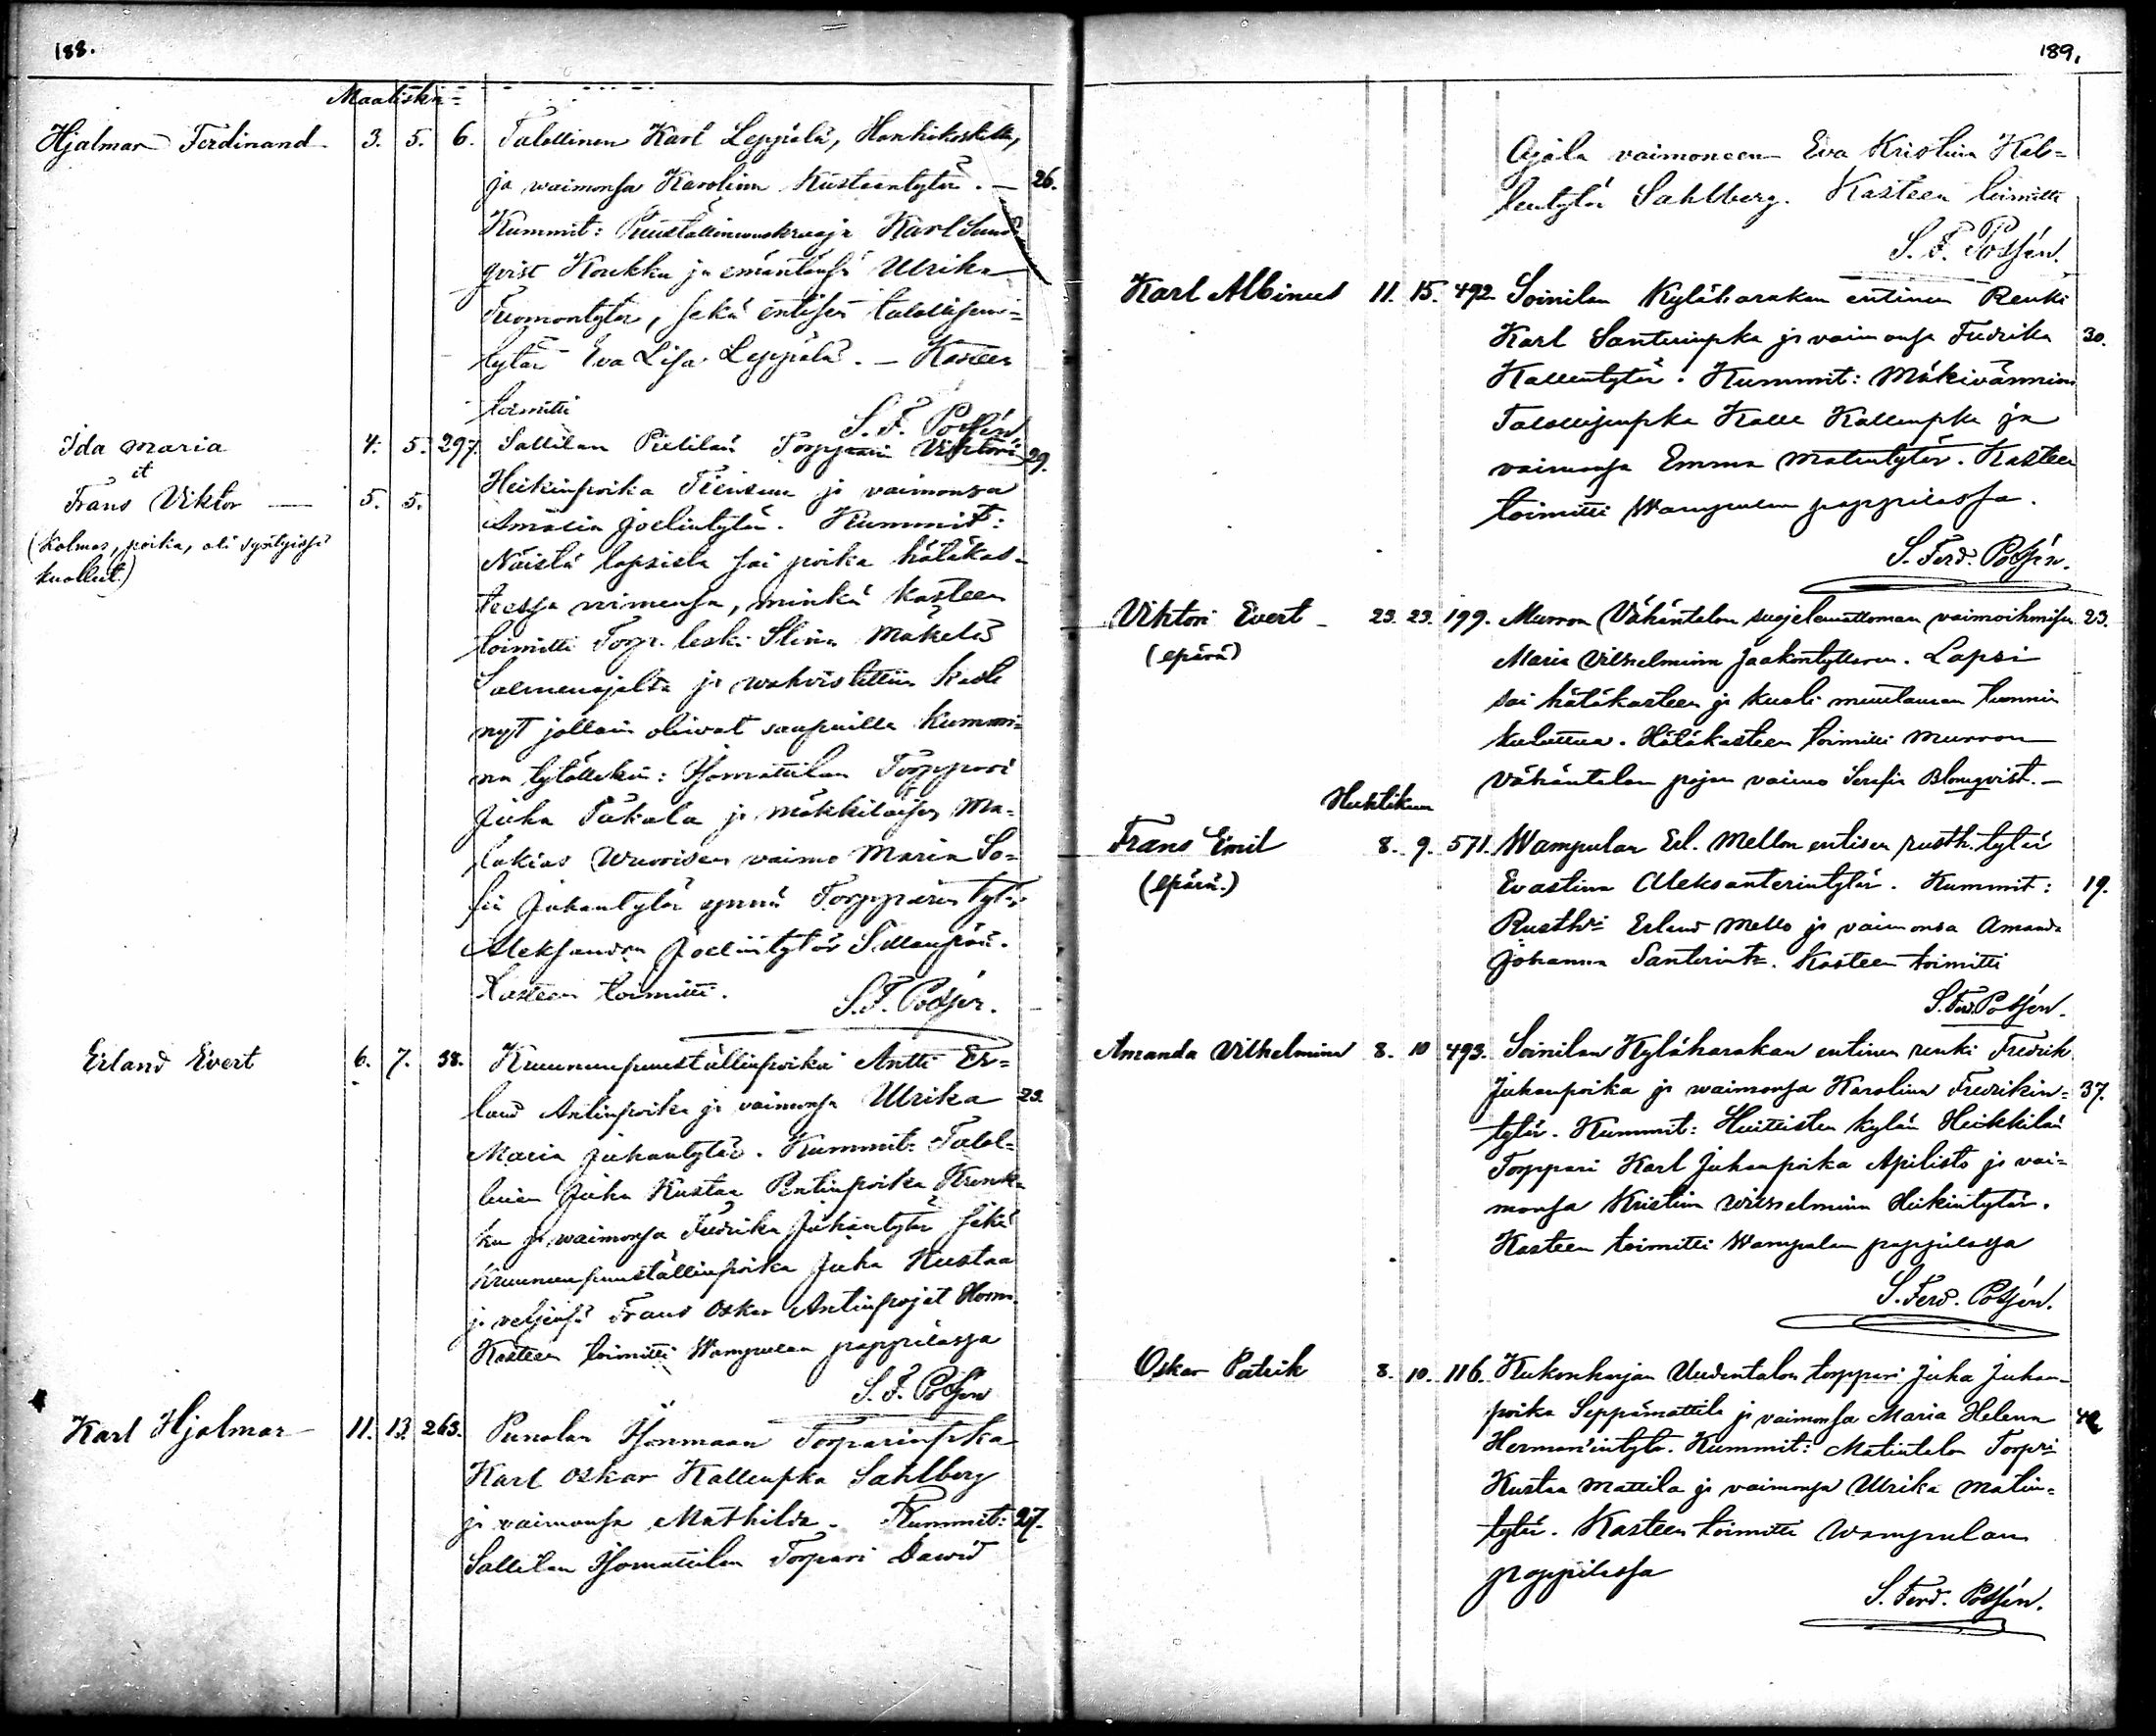 188.
Maalisku=
Hjalmar Ferdinand 3. 5. 6. Talollinen Karl Leppälä, Hanhikoskella,
ja waimonsa Karolina Kustaantytär. — 26.
Kummit: Karl Sund
qvist Koukku ja emäntänsä Ulrika
Tuomontytär, sekä entisen talollisen=
tytär Eva Lisa Leppälä. — Kasteen
toimitti S. F. Possén
Ida Maria 4. 5. 297. Sallilan Pietilän Torppari Viktori 29.
et
Frans Viktor — 5. 5. Heikinpoika ja vaimonsa
Amalia Joelintytär. Kummit:
(Kolmas, poika, oli syntyissä
kuollut.)
Näistä lapsista sai poika hätäkas=
teessa nimensä, minkä kasteen
toimitti Torp. leski Stina Mäkelä
ja wahvistettiin kaste
nyt jolloin olivat saapuilla kummi=
na tytöllekin: Isomattilan Torppari
Juha ja mäkkiläisen Ma=
lakias vaimo Maria So=
fia Juhantytär Torpparin tytär
Aleksandra Joelintytär Sillanpää.
Kasteen toimitti. S. F. Possén.
Erland Evert 6. 7. 38. Kruununpuuställinpoika Antti Er=
land Antinpoika ja vaimonsa Ulrika 23.
Maria Juhantytär. Kummit: Talol=
linen Juha Kustaa Penttinpoika Krouk=
ka ja waimonsa Fredrika Juhantytär sekä
Kruununpuuställinpoika Juha Kustaa
ja veljensä Frans Oskar Antinpojat
Kasteen toimitti Wampulan pappilassa
S. F. Possén
Karl Hjalmar 11. 13. 263. Punolan Isonmaan Torparinpka
Karl Oskar Kallenpka Sahlberg
ja vaimonsa Mathilda. Kummit: 27.
Sallilan Isomattilan Torpari Dawid
189.
Ajala vaimoneen Eva Kristiina Kal=
lentytär Sahlberg. Kasteen toimitti
S. F. Possén.
Karl Albinus 11. 15. 492. Soinilan Kyläharakan entinen Renki
Karl Santerinpka ja vaimonsa Fredrika 30.
Kallentytär. Kummit: Mäkivännin
Talollisenpka Kalle Kallenpka ja
vaimonsa Emma Matintytär. Kasteen
toimitti Wampulan pappilassa.
S. Ferd. Possén.
Viktori Evert 23. 23. 199. Murron Vähäntalon suojelemattoman vaimoihmisen 23.
(epärä)
Maria Vilhelmiina Jaakontyttären. Lapsi
sai hätäkasteen ja kuoli muutaman tunnin
kuluttua. Hätäkasteen toimitti Murron
Vähäntalon pojan vaimo Serafia Blomqvist. —
Huhtikuu
Frans Emil 8. 9. 571. Wampulan Erl. Mellon entisen rusth. tytär
(epärä.)
Evastina Aleksanterintytär. Kummit: 19.
Rusthri Erland Mello ja vaimonsa Amanda
Johanna Santerintr. Kasteen toimitti
S. Ferd. Possén.
Amanda Vilhelmina 8. 10 493. Soinilan Kyläharakan entinen renki Fredrik
Juhanpoika ja waimonsa Karolina Fredrikin= 37.
tytär. Kummit: Huittisten kylän Heikkilän
Torppari Karl Juhanpoika Apilisto ja vai=
monsa Kristiina Wilhelmiina Heikintytär.
Kasteen toimitti Wampulan pappilassa
S. Ferd. Possén.
Oskar Patrik 8. 10. 116. Kukonharjan Uudentalon torppari Juha Juhan=
poika Seppämattila ja vaimonsa Maria Helena
Hermanintytr. Kummit: Matintalon Torpri
Kustaa Mattila ja vaimonsa Ulrika Matin=
tytär. Kasteen toimitti Wampulan
pappilassa
S. Ferd. Possén.